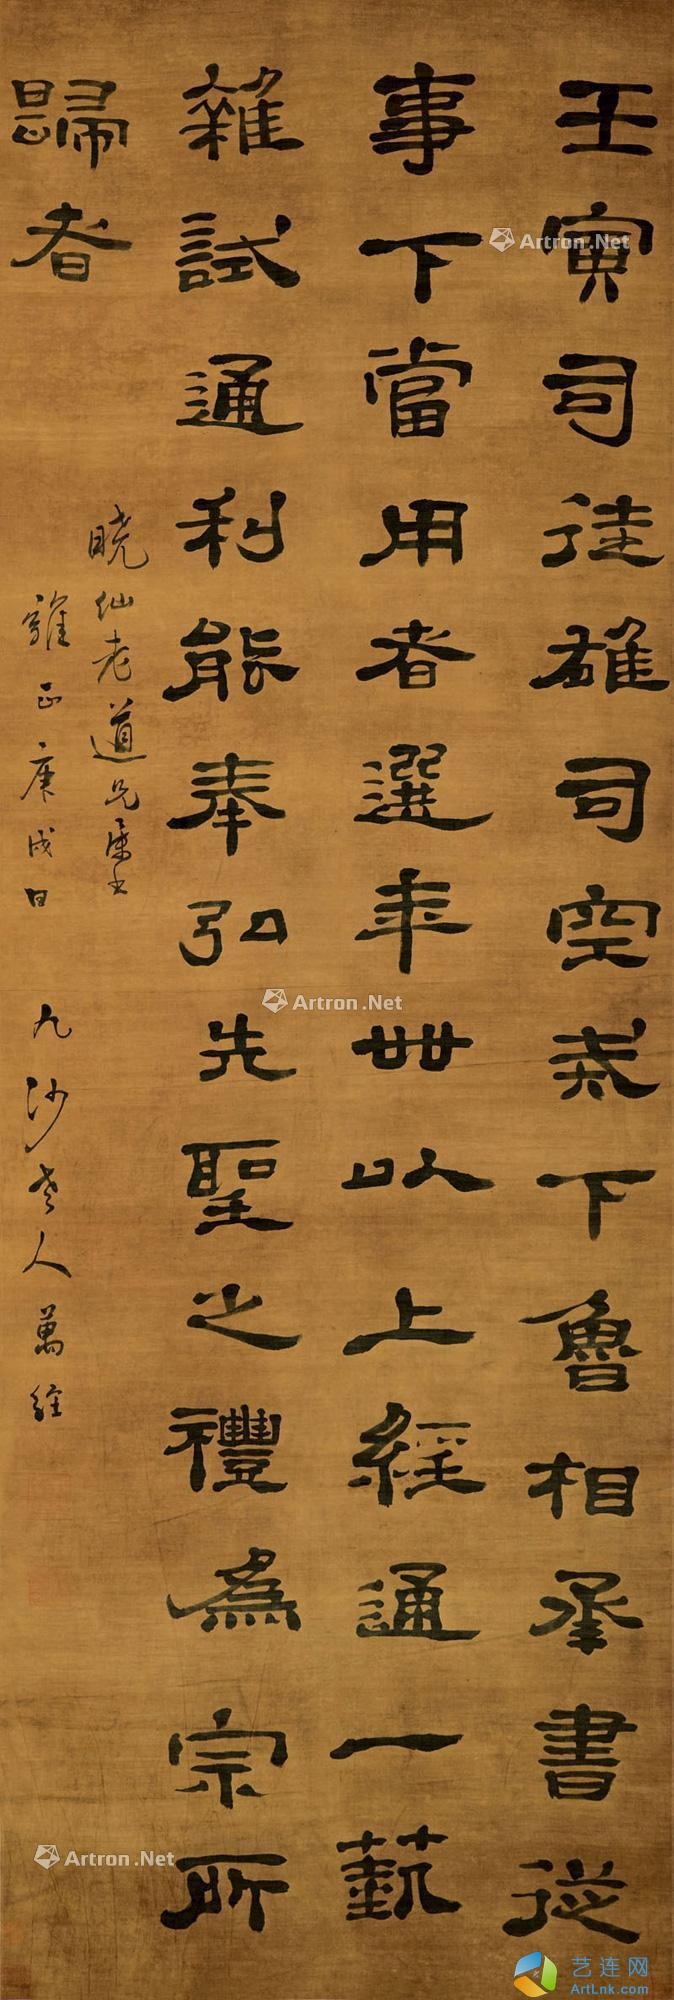 壬寅司徒雄司空戒下魯相承書從
事下當用者選年卌以上經通一藝
雜試通利能奉弘先聖之禮為宗所
歸者
曉仙老道兄屬書
雍正庚戌日 九沙老人萬經
Artron.Net
Artron.Net
Artron.Net
Artron.Net
艺连网
ArtLnk.com